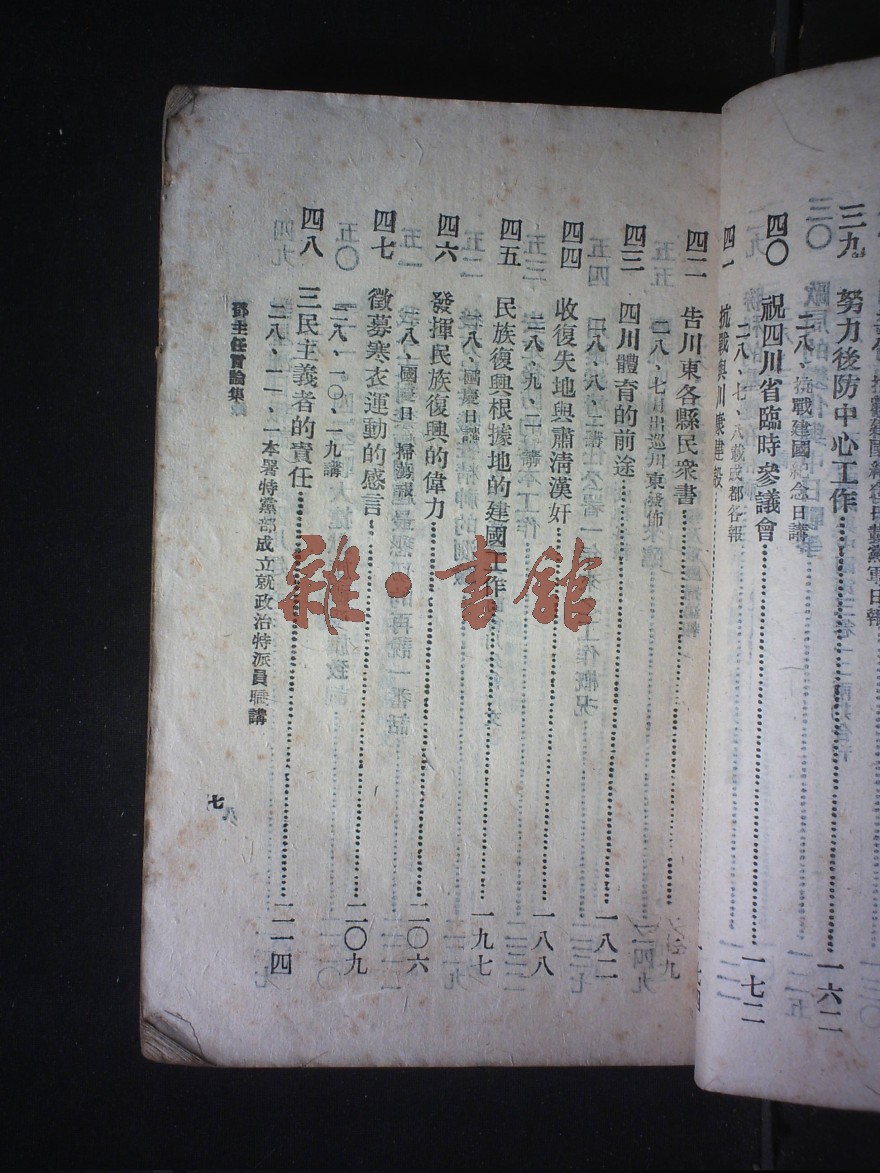 三九　努力後防中心工作……一六二
二八、抗戰建國紀念日講
四〇　祝四川省臨時參議會……一七二
二八、七、八載成都各報
四一　抗戰與川康建設
四二　告川東各縣民衆書
二八、七月出巡川東發佈
四三　四川體育的前途……一八二
四四　收復失地與肅清漢奸……一八八
二八、九、二
四五　民族復興根據地的建國工作……一九七
國慶日講
四六　發揮民族復興的偉力……二〇六
二八、國慶日 掃蕩報
四七　徵募寒衣運動的感言……二〇九
二八、一〇、一九講
四八　三民主義者的責任……二一四
二八、一一、二本署特黨部成立就政治特派員職講
鄧主任言論集
七
雜·書館